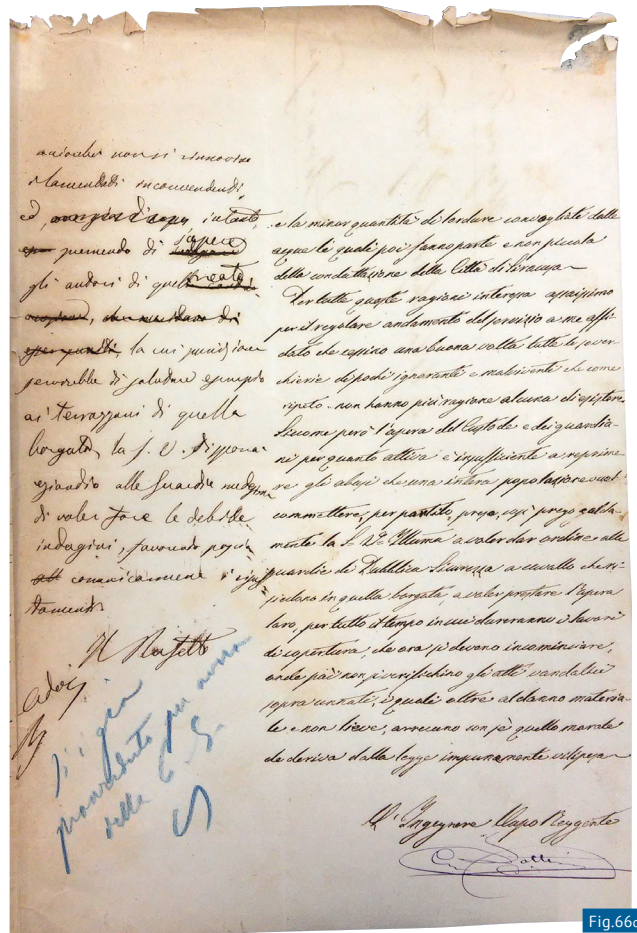 acciocchè non si rinnovino
i lamentati inconvenienti,
ed, intanto,
premendo di sapere
gli autori di quel reato
la cui punizione
servirebbe di salutare esempio
ai terrazzani di quella
borgata, la S. V. disporrà
eziandio alle Guardie medesime
di voler fare le debite
indagini, favorendo poscia
comunicarmene i risul
tamenti
Il Prefetto
e la minor quantità di lordure convogliate dalle
acque le quali poi fanno parte e non piccola
della condottazione della Città di Siracusa
Per tutte queste ragione interessa assaissimo
per il regolare andamento del servizio a me affi-
dato che cessino una buona volta tutte le sover-
chierie di pochi ignoranti e malviventi che come
ripeto non hanno più ragione alcuna di esistere.
Siccome però l'opera del Custode e dei guardia-
ni per quanto attiva è insufficiente a reprime-
re gli abusi che una intera popolazione vuol
commettere, per partito preso, così prego calda-
mente la S. Va. Illuma a voler dar ordine alle
guardie di Pubblica Sicurezza a cavallo che ri-
siedono in quella borgata, a voler prestare l'opera
loro, per tutto il tempo in cui dureranno i lavori
di copertura, che ora si devono incominciare,
onde poi non si verifichino gli atti vandalici
sopra cennati, i quali oltre al danno materia-
le e non lieve, arrecano con sè quello morale
che deriva dalla legge impunemente vilipesa
L'Ingegnere Capo Reggente
Si è già
provveduto per mezzo
della
Fig.66c